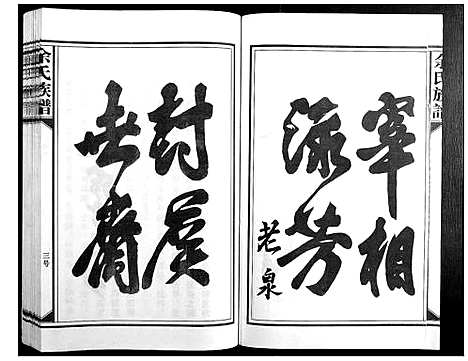 余氏族譜
宰相
流芳
老泉
封侯
世爵
余氏族譜
三号